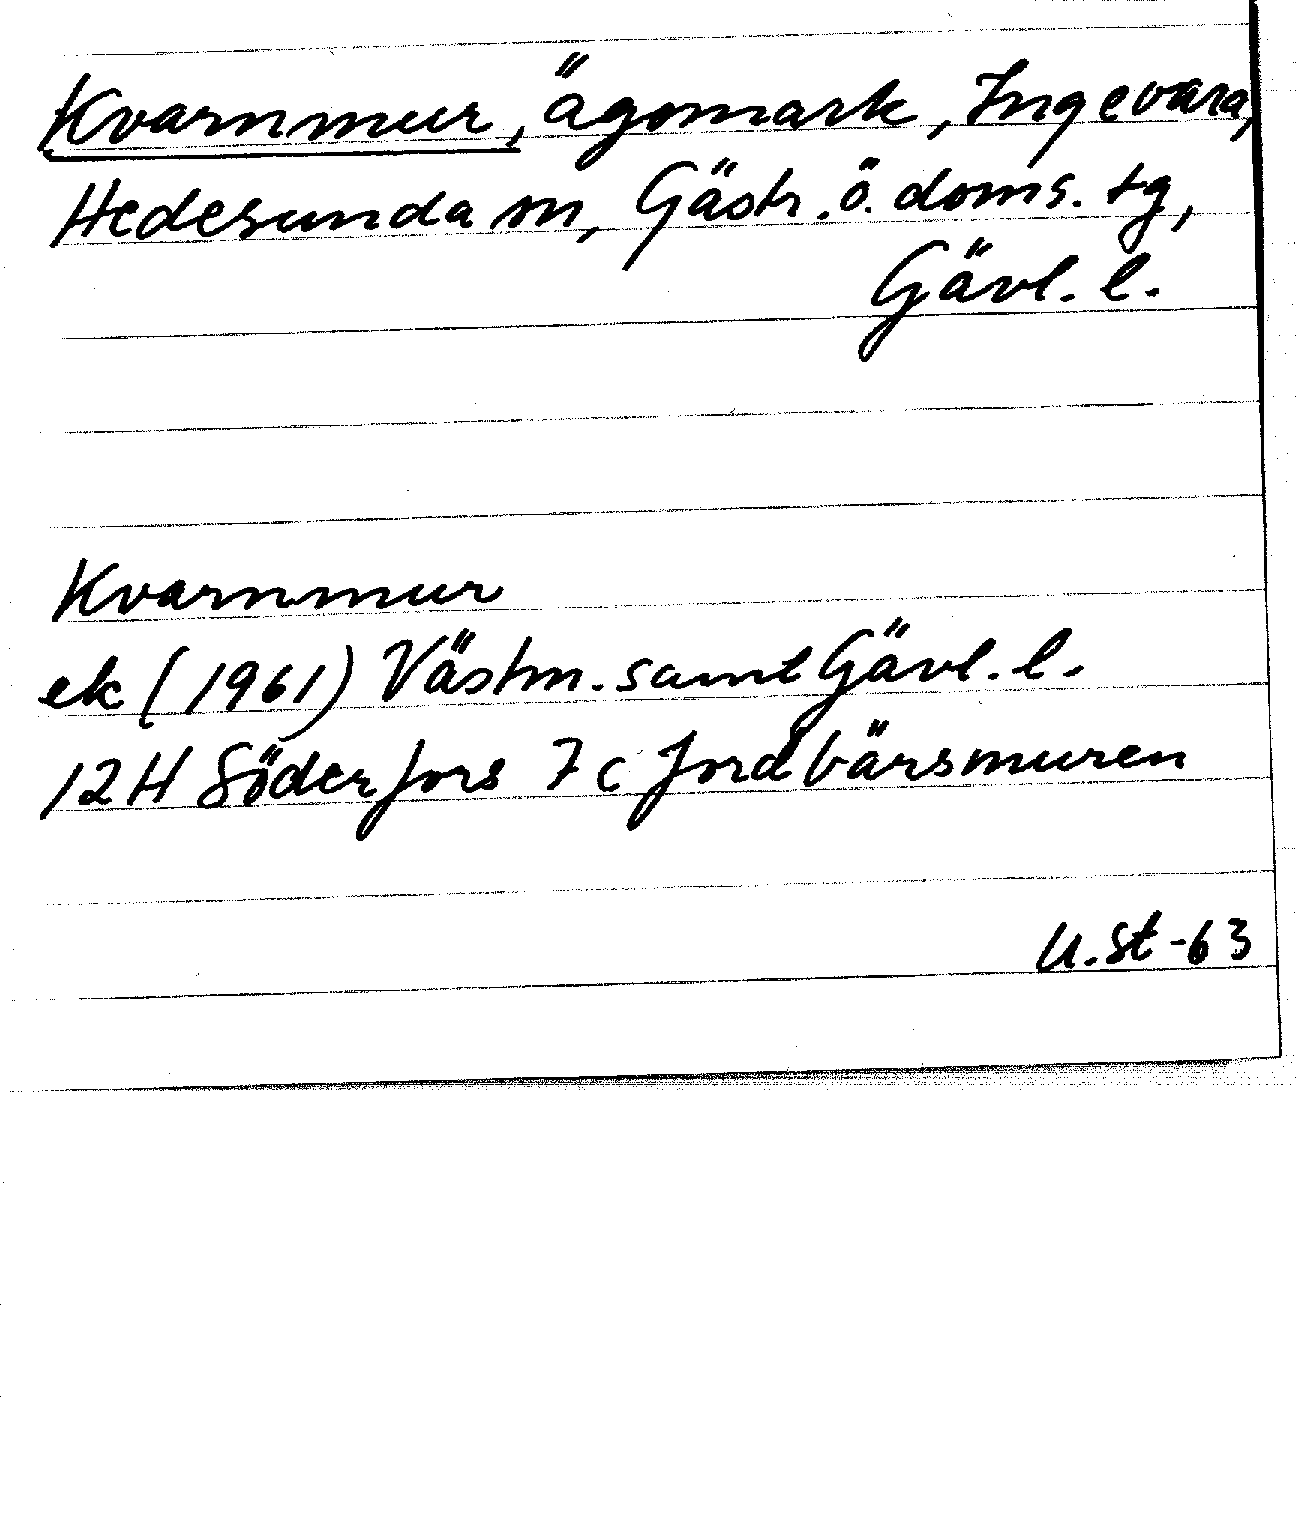 Kvarnmur, ägomark, Ingevara,
Hedesunda sn, Gästr. ö. doms. tg,
Gävl. l.
Kvarnmur
ek (1961) Västm. samt Gävl. l.
12H Söderfors 7c Jordbärsmuren
U.St-63